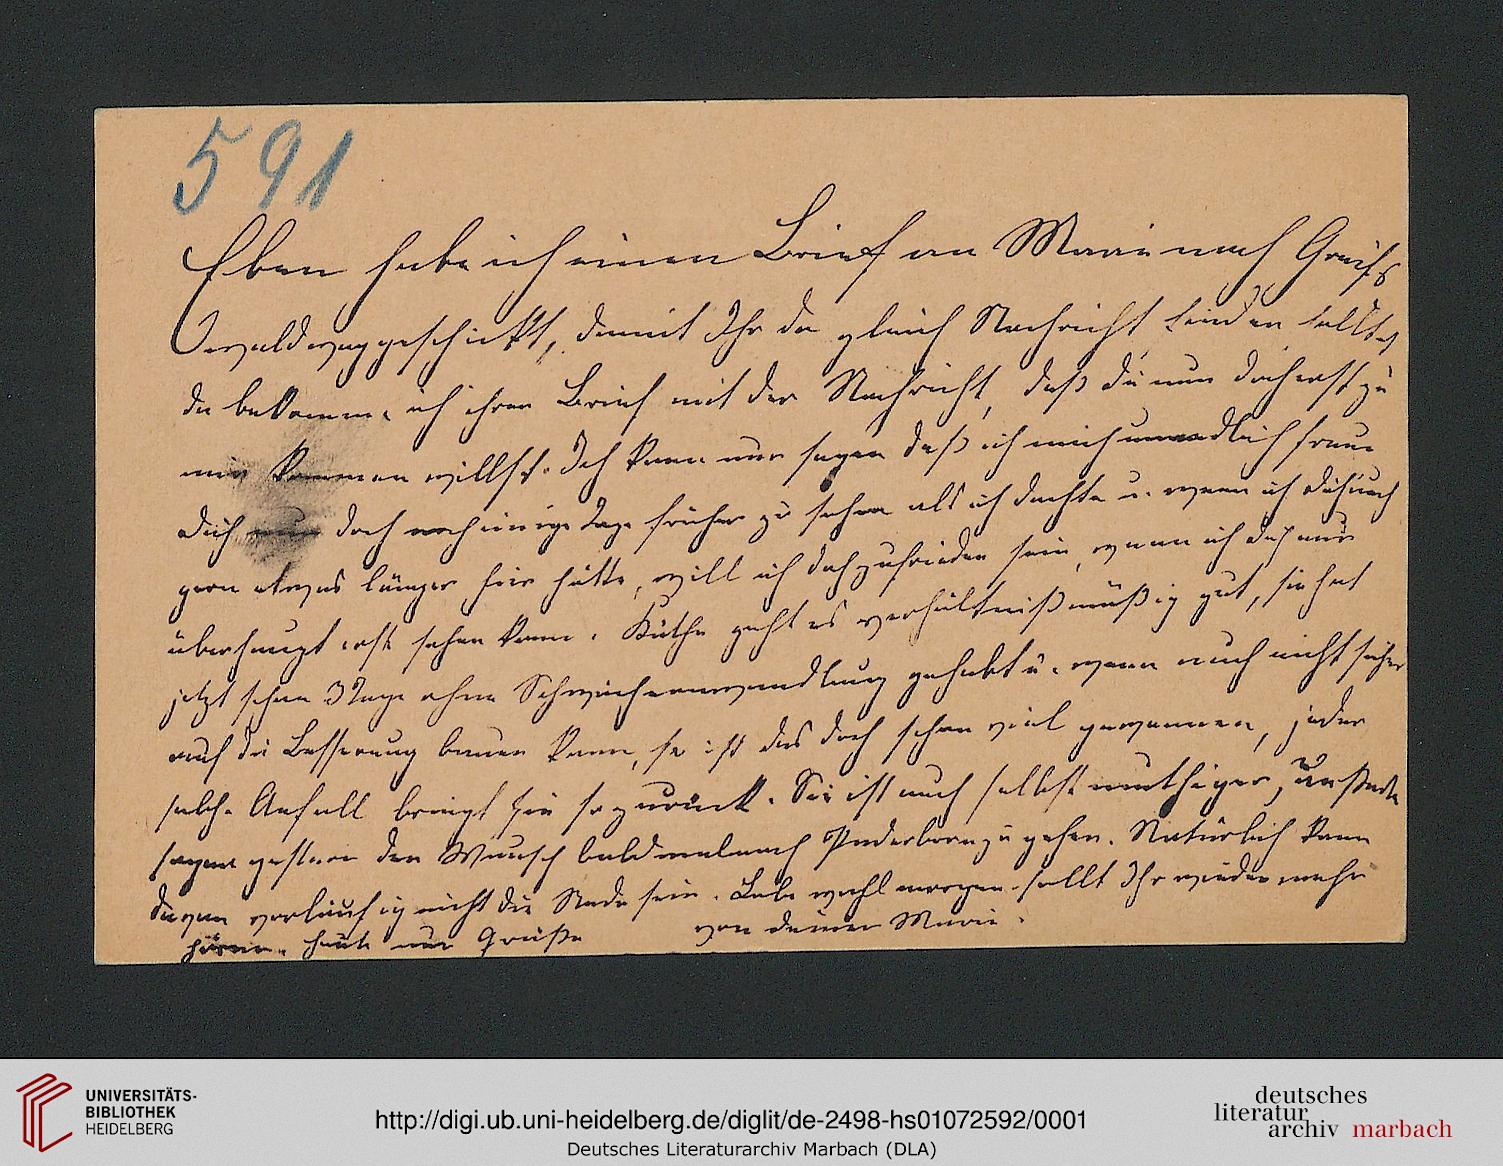 591
Eben habe ich einen Brief an Marie nach Greifs
wald weggeschickt, damit Ihr da gleich Nachricht finden solltet,
da bekomme ich ihren Brief mit der Nachricht, daß du nun doch erst zu
mir kommen willst. Ich kann nur sagen daß ich mich unendlich freue
dich nun doch noch einige Tage früher zu sehen als ich dachte u. wenn ich dich auch
gern etwas länger hier hätte, will ich doch zufrieden sein, wenn ich dich nur
überhaupt erst sehen kann. Käthe geht es verhältnißmäßig gut, sie hat
jetzt schon 3 Tage ohne Schwächeanwandlung gehabt u. wenn auch nicht sicher
auf die Besserung bauen kann, so ist das doch schon viel gewonnen, jeder
solche Anfall bringt sie so zurück. Sie ist auch selbst muthiger,
sogar gestern den Wunsch bald mal nach Paderborn zu gehen. Natürlich kann
davon vorläufig nicht die Rede sein. Lebe wohl morgen sollt Ihr wieder mehr
hören. heute nur Grüße von deiner Marie.
UNIVERSITÄTS-
BIBLIOTHEK
HEIDELBERG
http://digi.ub.uni-heidelberg.de/diglit/de-2498-hs01072592/0001
Deutsches Literaturarchiv Marbach (DLA)
deutsches
literatur
archiv marbach